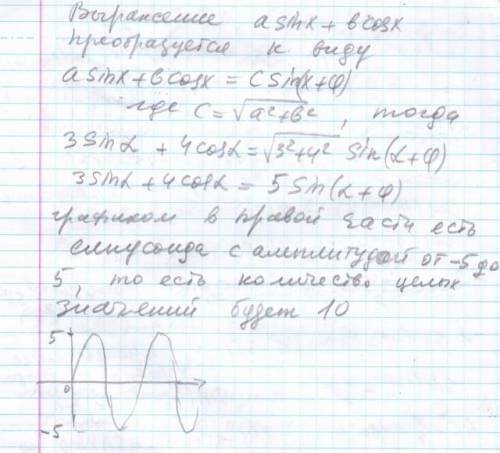 Выражение a sinx + b cosx
преобразуется к виду
a sinx + b cosx = C sin(x+φ)
где C = √a²+b² , тогда
3 sinα + 4 cosα = √3²+4² sin(α+φ)
3 sinα + 4 cosα = 5 sin(α+φ)
графиком в правой части есть
синусоида с амплитудой от -5 до
5, то есть количество целых
значений будет 10
5
0
-5